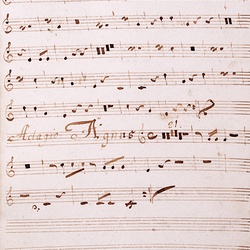 Adagio Agnus